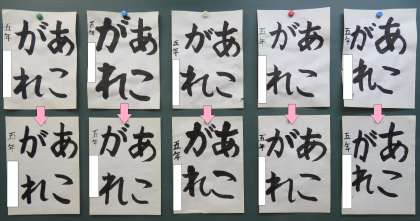 あこ
がれ
五年
あこ
がれ
五年
あこ
がれ
五年
あこ
がれ
五年
あこ
がれ
五年
あこ
がれ
五年
あこ
がれ
五年
あこ
がれ
五年
あこ
がれ
五年
あこ
がれ
五年